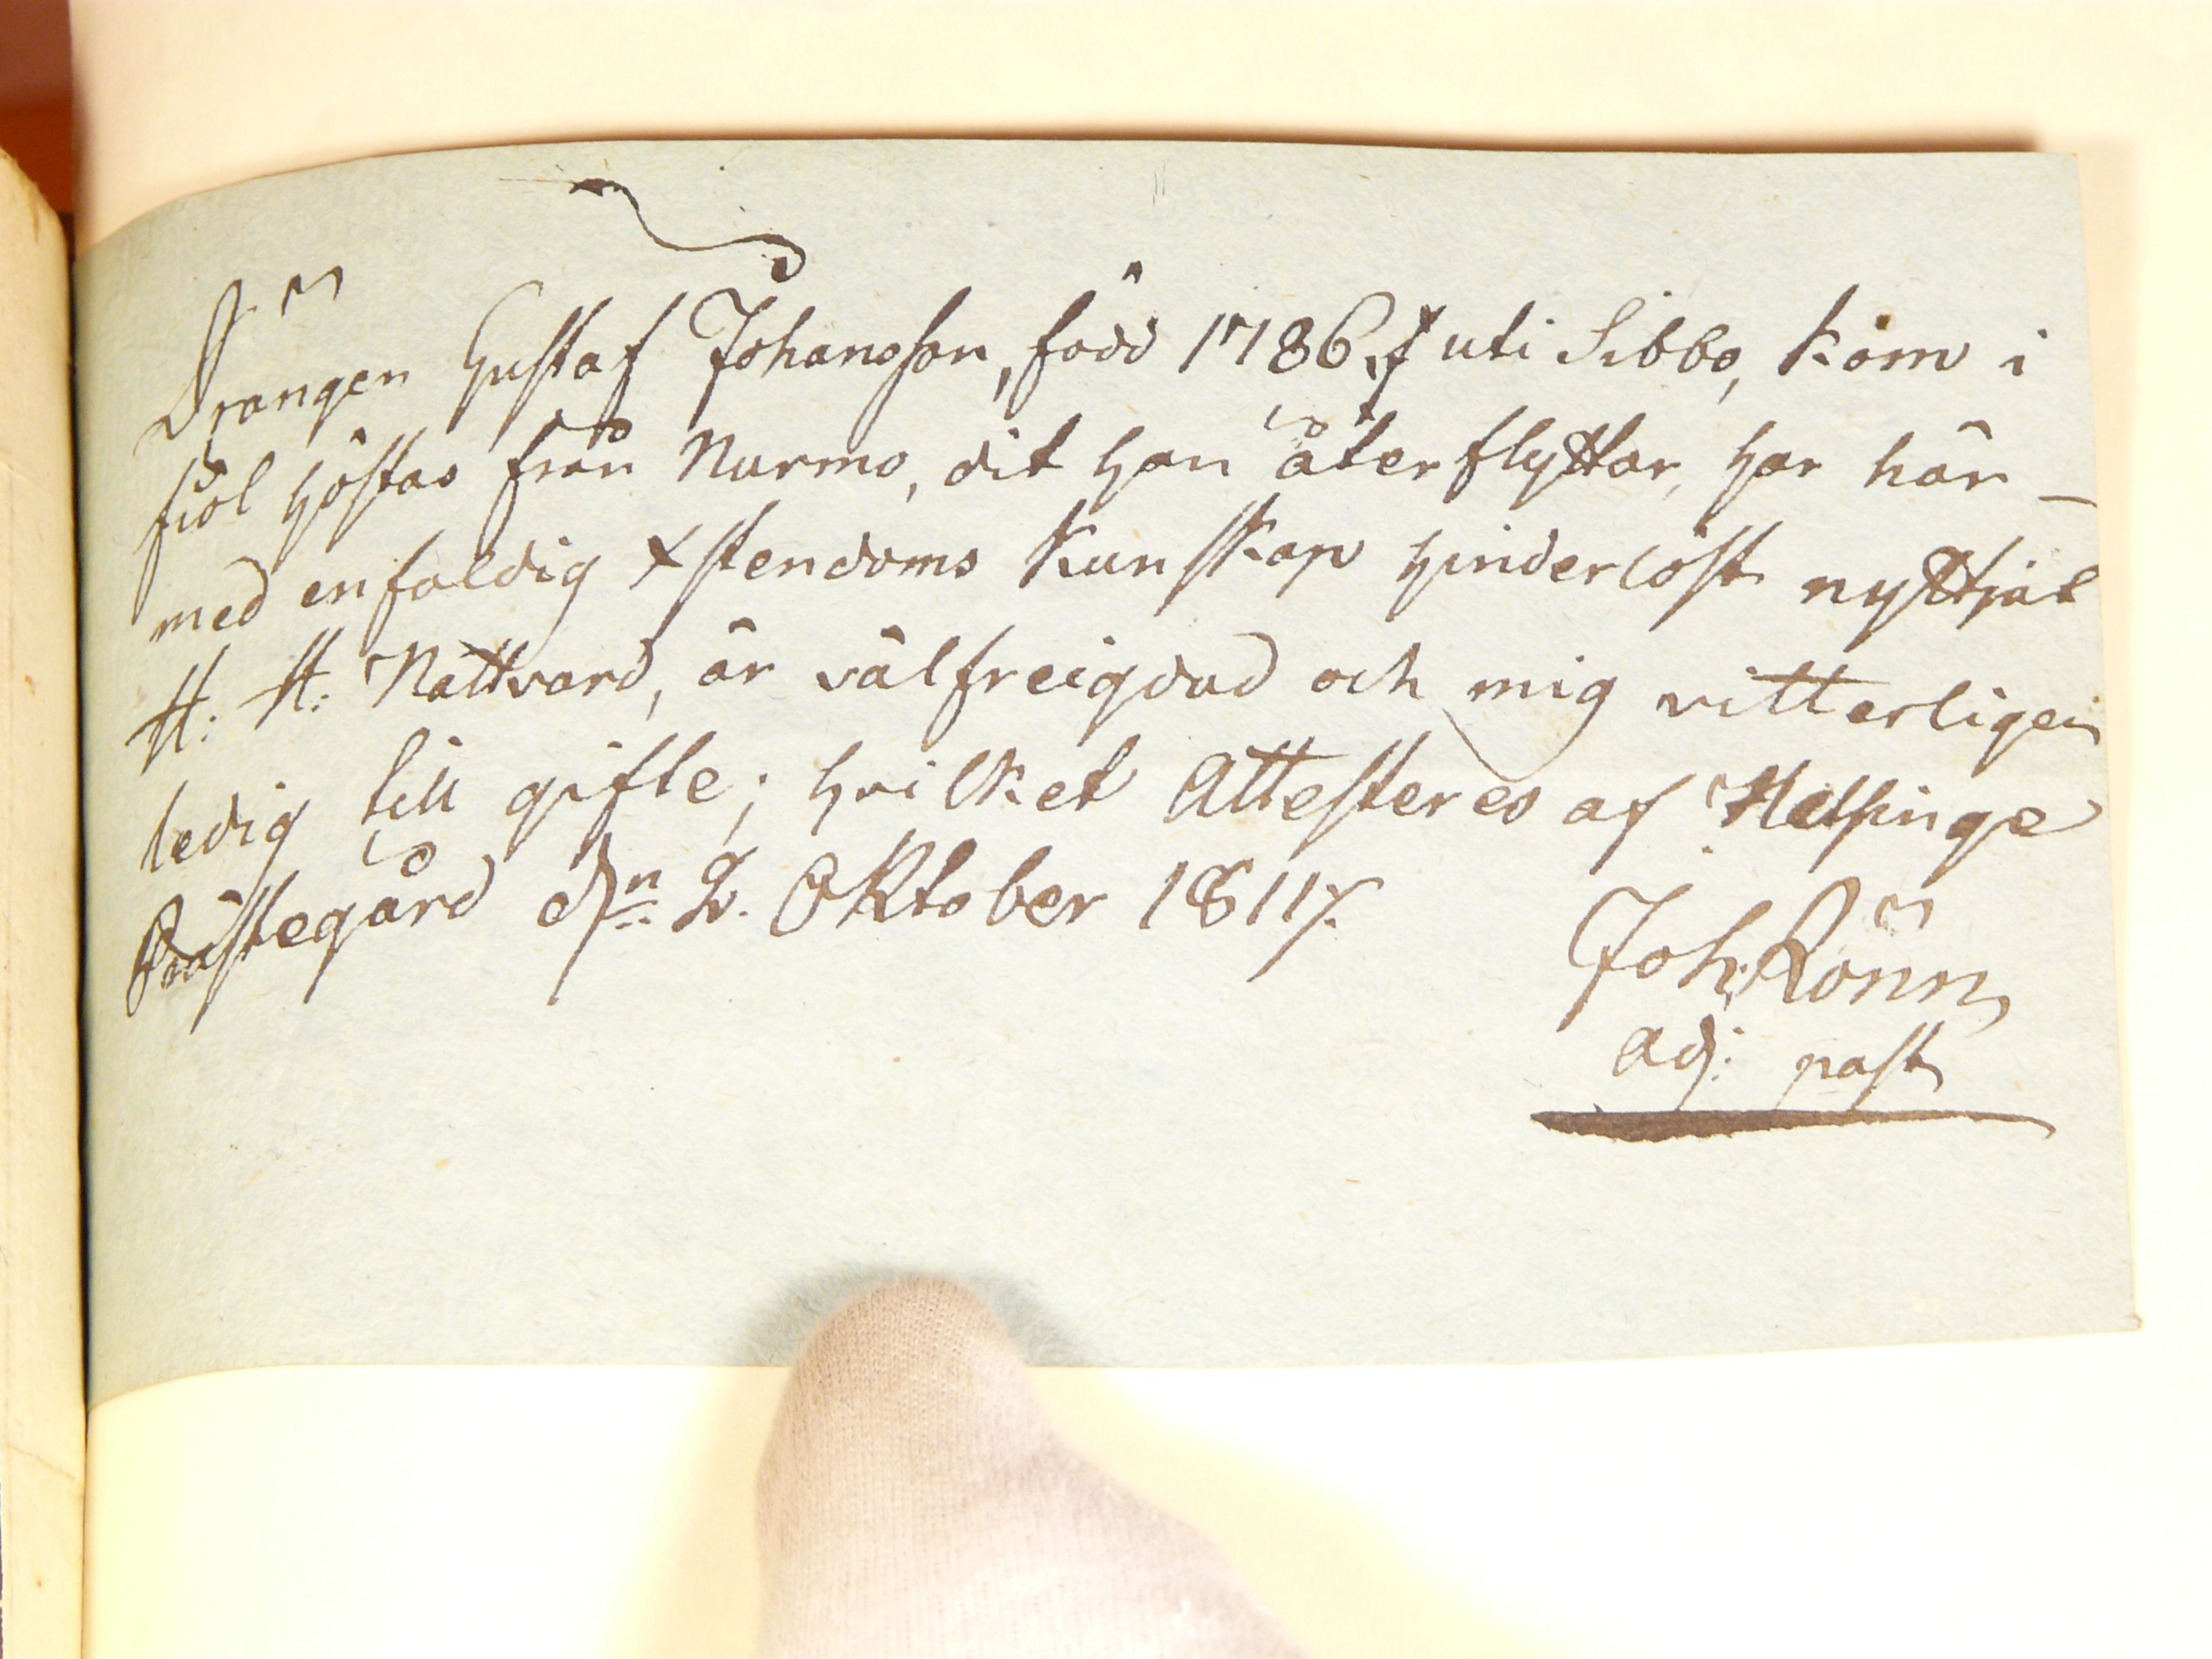 Drängen Gustaf Johansson, född 1786 uti Sibbo, kom i
fiol höstas från Nurmo, dit han återflyttar, har här
med enfaldig Xstendoms kunskap hinderlöst nyttjat
H. H. Nattvard, är välfreigdad och mig vitterligen
ledig till gifte; hvilket Attesteres af Helsinge
Prästegård d:n 2. Oktober 1817.
Joh. Rönn
adj: past